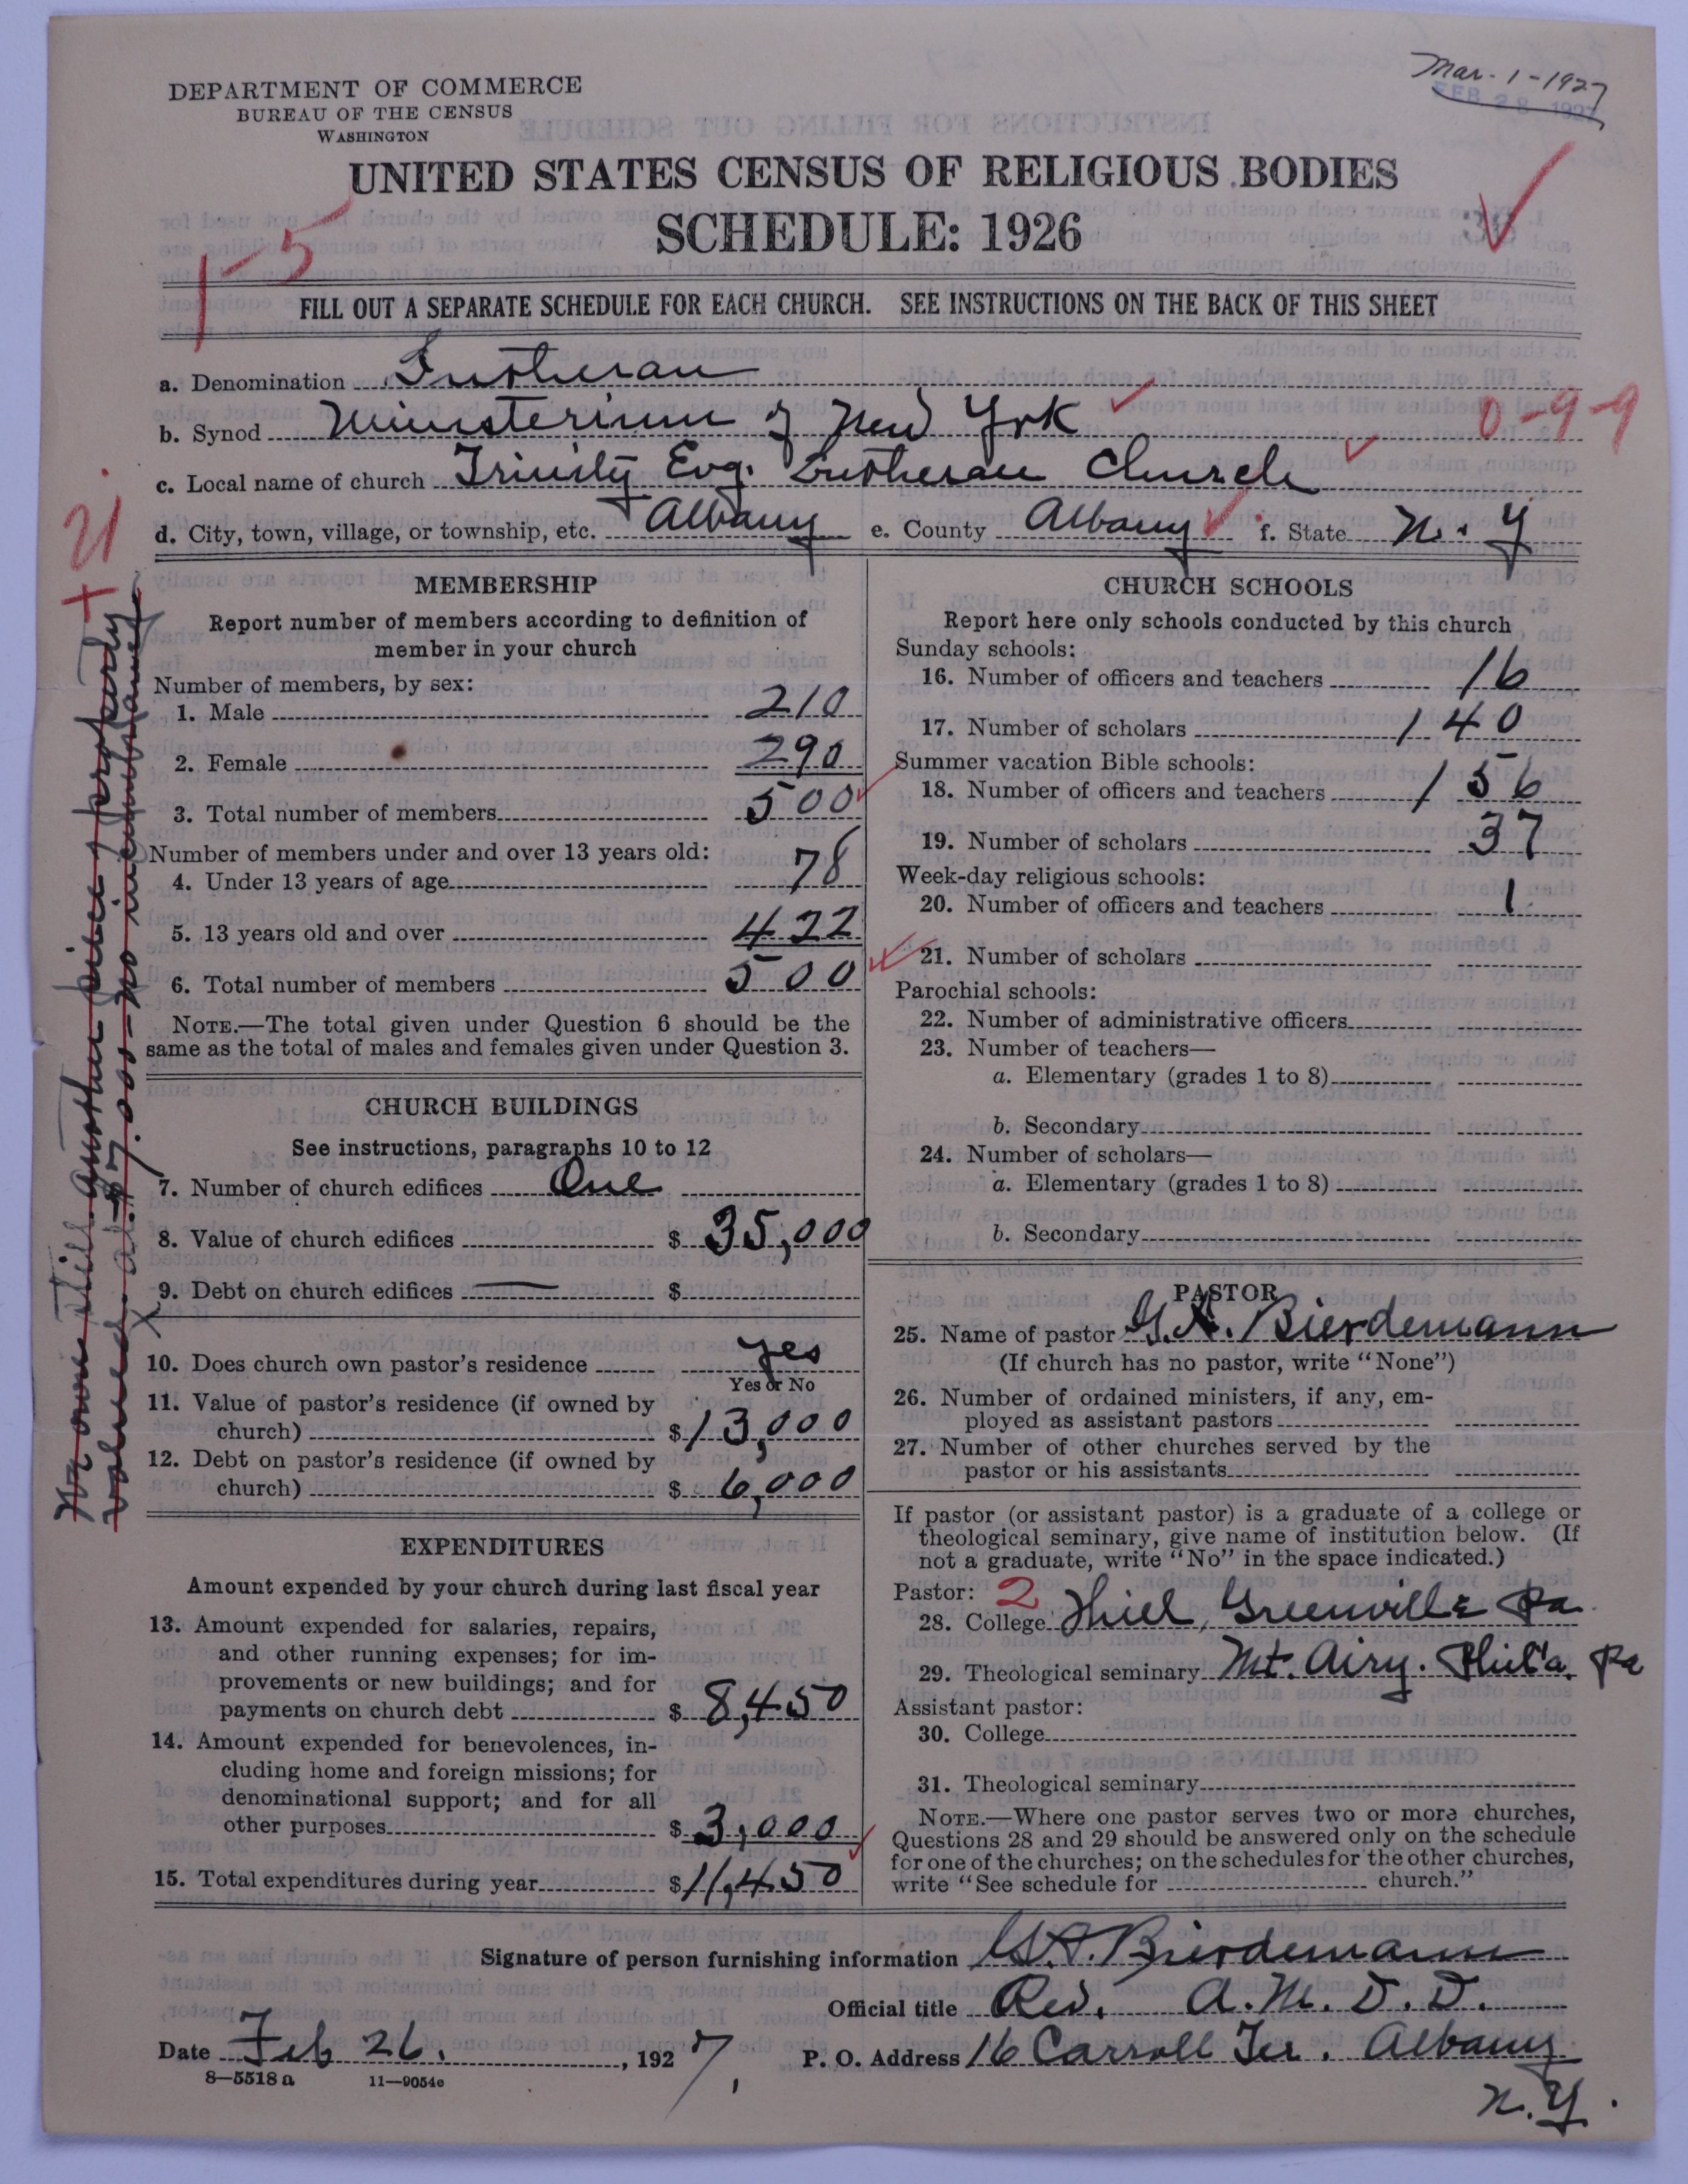 Mar. 1-1927
FEB 28 1927
DEPARTMENT OF COMMERCE
BUREAU OF THE CENSUS
WASHINGTON
UNITED STATES CENSUS OF RELIGIOUS BODIES
SCHEDULE: 1926
1-5
FILL OUT A SEPARATE SCHEDULE FOR EACH CHURCH. SEE INSTRUCTIONS ON THE BACK OF THIS SHEET
a. Denomination Lutheran
b. Synod Ministerium of New York
0-9-9
c. Local name of church Trinity Evg. Lutheran Church
d. City, town, village, or township, etc. Albany e. County Albany f. State N. Y
MEMBERSHIP
Report number of members according to definition of
member in your church
Number of members, by sex:
1. Male 210
2. Female 290
3. Total number of members 500
Number of members under and over 13 years old:
4. Under 13 years of age 78
5. 13 years old and over 422
6. Total number of members 500
NOTE.—The total given under Question 6 should be the
same as the total of males and females given under Question 3.
CHURCH BUILDINGS
See instructions, paragraphs 10 to 12
7. Number of church edifices One
8. Value of church edifices $ 35,000
9. Debt on church edifices — $
10. Does church own pastor's residence yes
Yes or No
11. Value of pastor's residence (if owned by
church) $ 13,000
12. Debt on pastor's residence (if owned by
church) $ 6,000
EXPENDITURES
Amount expended by your church during last fiscal year
13. Amount expended for salaries, repairs,
and other running expenses; for im-
provements or new buildings; and for
payments on church debt $ 8,450
14. Amount expended for benevolences, in-
cluding home and foreign missions; for
denominational support; and for all
other purposes $ 3,000
15. Total expenditures during year $ 11,450
CHURCH SCHOOLS
Report here only schools conducted by this church
Sunday schools:
16. Number of officers and teachers 16
17. Number of scholars 140
Summer vacation Bible schools:
18. Number of officers and teachers 156
19. Number of scholars 37
Week-day religious schools:
20. Number of officers and teachers 1
21. Number of scholars
Parochial schools:
22. Number of administrative officers
23. Number of teachers—
a. Elementary (grades 1 to 8)
b. Secondary
24. Number of scholars—
a. Elementary (grades 1 to 8)
b. Secondary
PASTOR
25. Name of pastor G. A. Bierdemann
(If church has no pastor, write "None")
26. Number of ordained ministers, if any, em-
ployed as assistant pastors
27. Number of other churches served by the
pastor or his assistants
If pastor (or assistant pastor) is a graduate of a college or
theological seminary, give name of institution below. (If
not a graduate, write "No" in the space indicated.)
Pastor: 2
28. College Thiel, Greenville Pa
29. Theological seminary Mt. Airy. Phil'a. Pa
Assistant pastor:
30. College
31. Theological seminary
NOTE.—Where one pastor serves two or more churches,
Questions 28 and 29 should be answered only on the schedule
for one of the churches; on the schedules for the other churches,
write "See schedule for church."
Signature of person furnishing information G. A. Bierdemann
Official title Rev. A. M. D. D.
Date Feb 26. , 1927, P. O. Address 16 Carroll Ter. Albany
N. Y.
8—5518 a 11—9054c
We own still another piece property
valued at $7,000 - no incumbrance